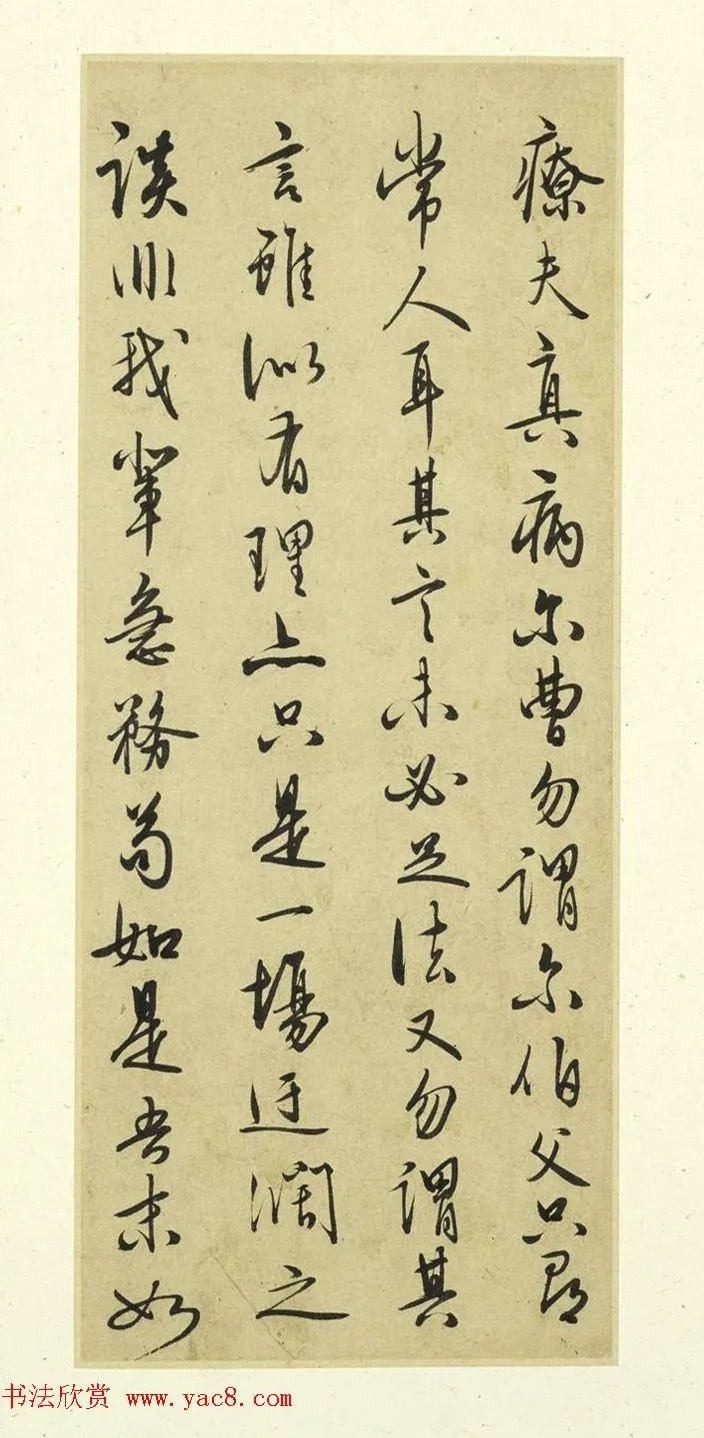 療夫真病尔曹勿謂尔伯父只尋
常人耳其言未必足法又勿謂其
言雖似有理亦只是一場迂闊之
談非我輩急務苟如是吾末如
书法欣赏 www.yac8.com